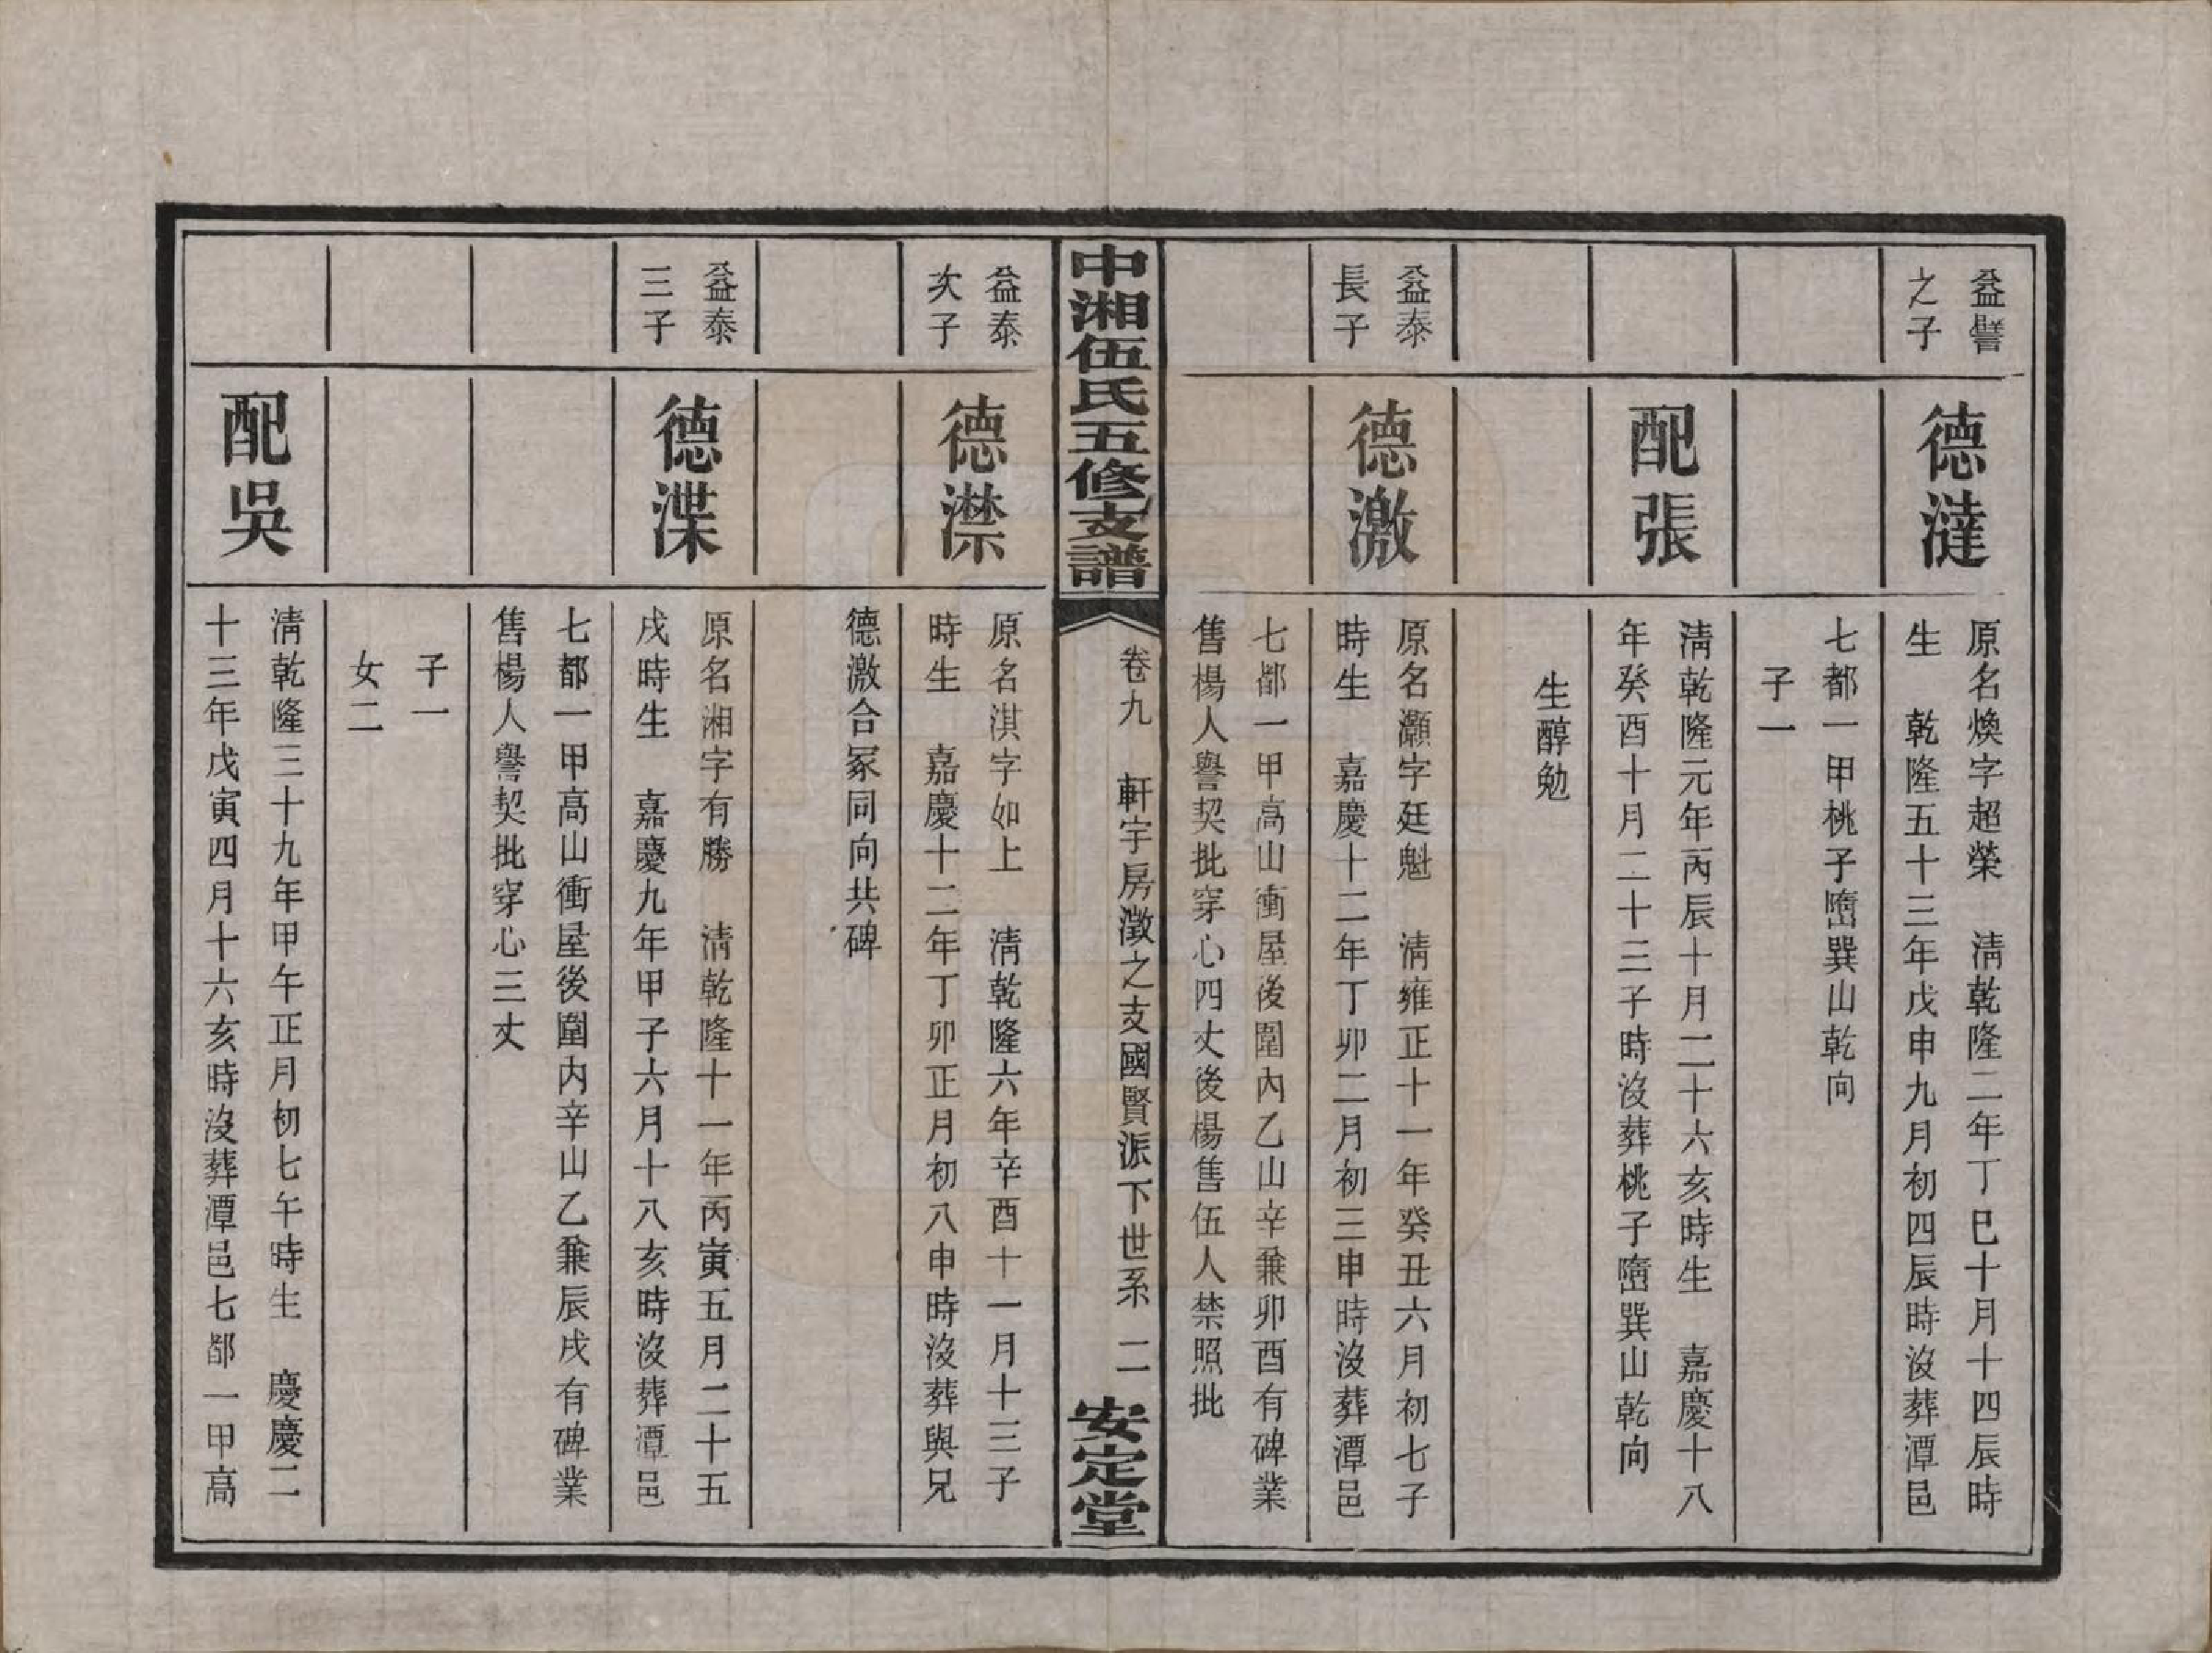 益譬
之子
德澾
原名煥字超榮　清乾隆二年丁巳十月十四辰時
生　乾隆五十三年戊申九月初四辰時沒葬潭邑
七都一甲桃子壪巽山乾向
子一
配張
清乾隆元年丙辰十月二十六亥時生　嘉慶十八
年癸酉十月二十三子時沒葬桃子壪巽山乾向
生醇勉
益泰
長子
德激
原名灝字廷魁　清雍正十一年癸丑六月初七子
時生　嘉慶十二年丁卯二月初三申時沒葬潭邑
七都一甲高山衝屋後圍內乙山辛兼卯酉有碑業
售楊人譽契批穿心四丈後楊售伍人禁照批
中湘伍氏五修支譜
卷九　軒宇房澂之支國賢派下世系　二
安定堂
益泰
次子
德澿
原名淇字如上　清乾隆六年辛酉十一月十三子
時生　嘉慶十二年丁卯正月初八申時沒葬與兄
德激合冢同向共碑
益泰
三子
德渫
原名湘字有勝　清乾隆十一年丙寅五月二十五
戌時生　嘉慶九年甲子六月十八亥時沒葬潭邑
七都一甲高山衝屋後圍內辛山乙兼辰戌有碑業
售楊人譽契批穿心三丈
子一
女二
配吳
清乾隆三十九年甲午正月初七午時生　慶慶二
十三年戊寅四月十六亥時沒葬潭邑七都一甲高